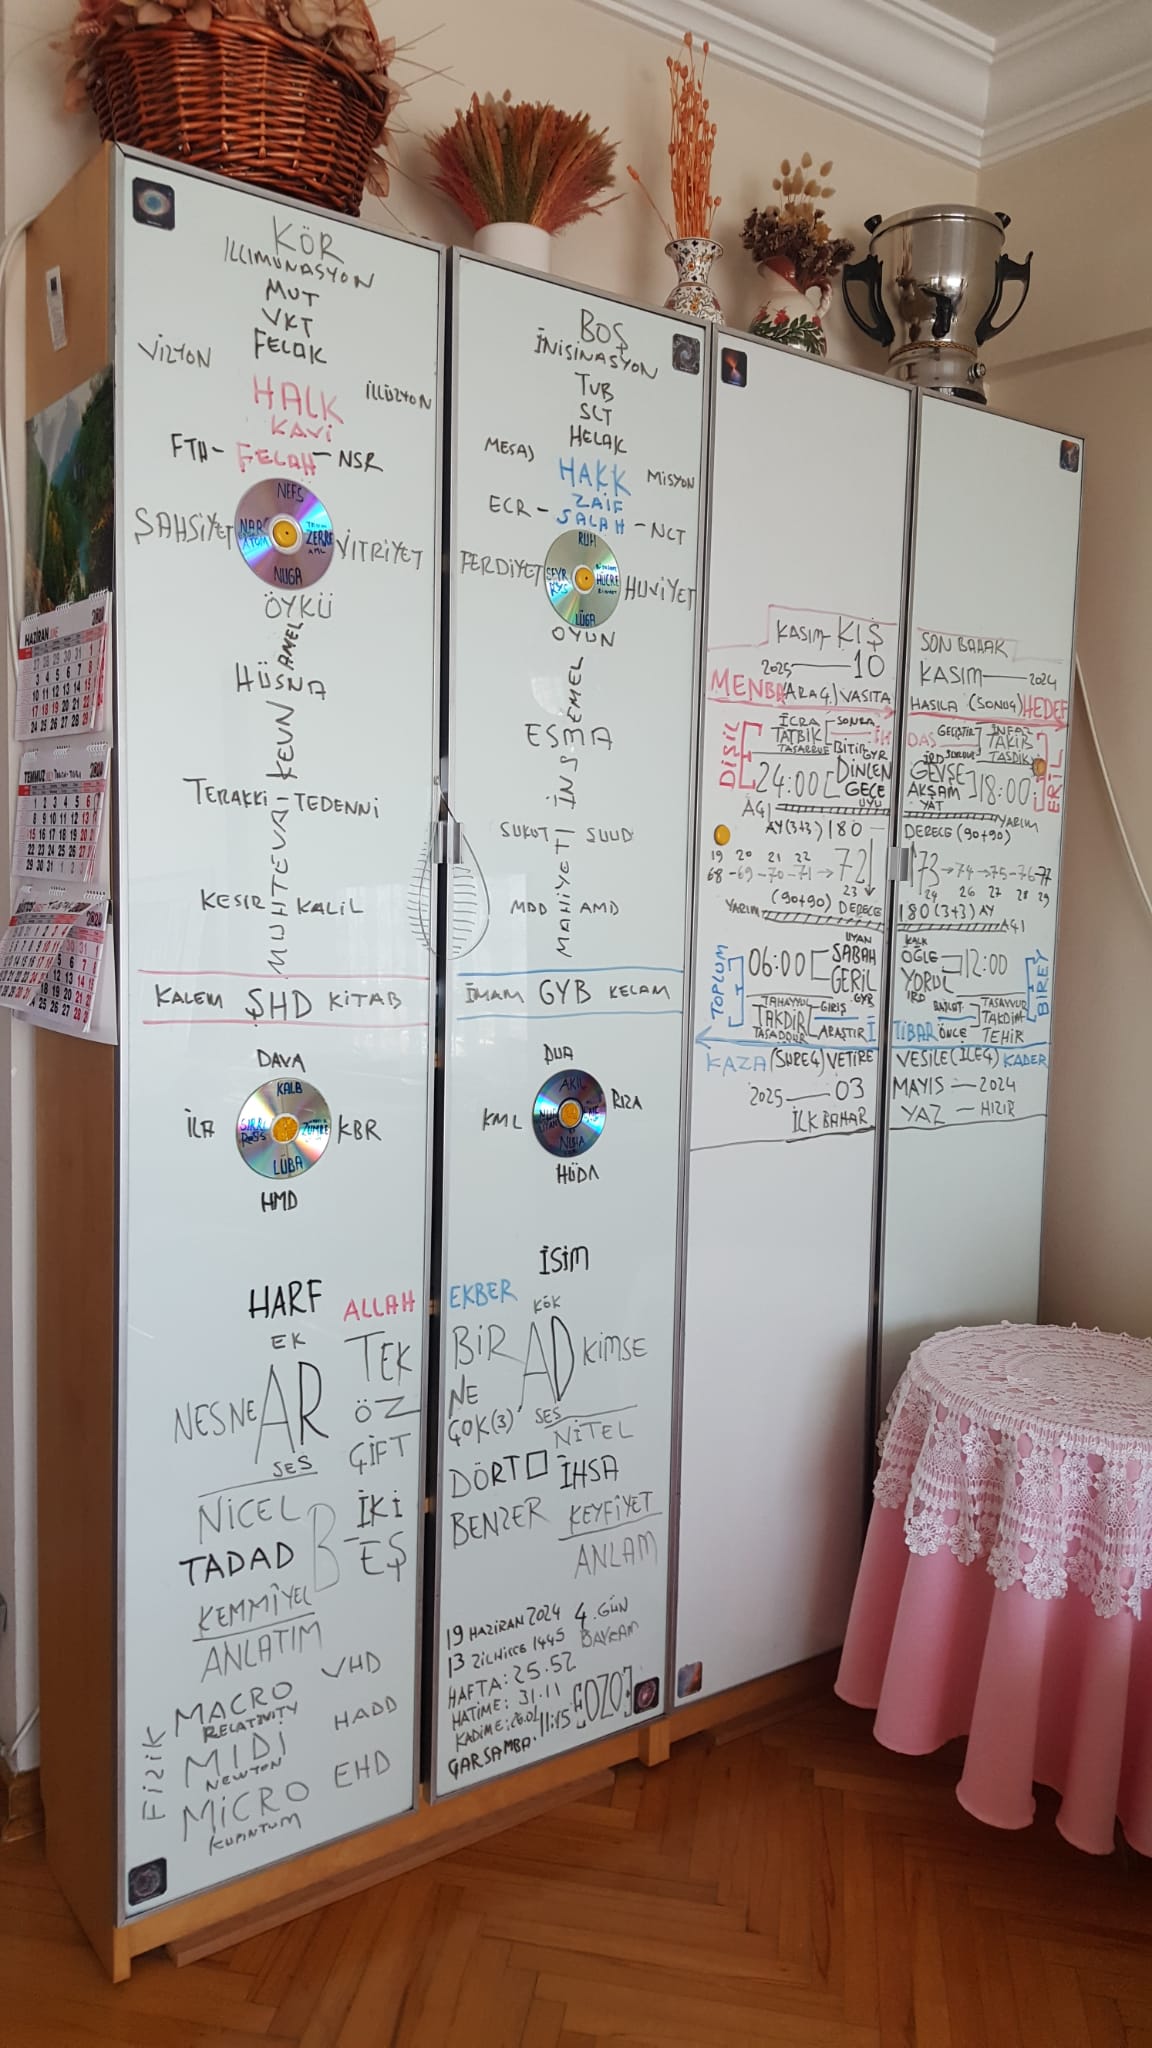 KÖR
ILLIMUNASYON
MUT
VKT
FELAK
VİZYON
İLLÜZYON
HALK
KAVİ
FTH- FELAH -NSR
NEFS
ŞAHSİYET
NAR
ATOM
ZERRE
VITRİYET
NUGA
ÖYKÜ
AMEL
HÜSNA
KEVN
TERAKKİ - TEDENNİ
MUHTEVA
KESIR KALİL
KALEM ŞHD KİTAB
DAVA
KALB
İLA
SIRR
ZÜMRE
KBR
LÜBA
HMD
HARF
ALLAH
EK
TEK
NESNE AR
ÖZ
SES
ÇİFT
NİCEL
B
İKİ
TADAD
EŞ
KEMMİYET
ANLATIM
VHD
FİZİK
MACRO
RELATIVITY
HADD
MIDI
NEWTON
EHD
MİCRO
KUANTUM
BOŞ
İNİSİNASYON
TUB
SLT
HELAK
MESAJ
MİSYON
HAKK
ZAİF
ECR - SALAH - NCT
RUH
FERDİYET
HÜCRE
HUVİYET
LÜGA
OYUN
EMEL
ESMA
İNS
SUKUT SUUD
MAHİYET
MDD AMD
İMAM GYB KELAM
DUA
AKIL
KML
RIZA
NUHA
HÜDA
İSİM
EKBER
KÖK
BİR AD KİMSE
NE
ÇOK(3)
SES
NİTEL
DÖRT İHSA
BENZER
KEYFİYET
ANLAM
19 HAZİRAN 2024 4. GÜN
13 ZİLHİCCE 1445 BAYRAM
HAFTA: 25.52
HATİME: 31.11
KADİME: 26.01
11:15
ÇARŞAMBA
OZO
KASIM KIŞ
2025 — 10
MENBA (ARAÇ) VASITA
DİŞİL
İCRA
TATBİK
TASARRUF
SONRA
BİTİR
GYR
24:00 DİNLEN
GECE
UYU
AÇI
AY(3+3) 180
19 20 21 22
68 - 69 - 70 - 71 → 72
23
(90+90) DERECE
YARIM
TOPLUM
06:00
UYAN
SABAH
GERİL
GYB
TAHAYYUL
TAKDİR
TASADDUR
GİRİŞ
ARAŞTIR
KAZA (SÜREÇ) VETİRE
2025 — 03
İLK BAHAR
SON BAHAR
KASIM — 2024
HASILA (SONUÇ) HEDEF
DAS
GELİŞTİR
İNFAZ
TAKİB
TASDİK
ERİL
GEVŞE
AKŞAM
YAT
18:00
YARIM
DERECE (90+90)
73 → 74 → 75 - 76 - 77
24 26 27 28 29
180 (3+3) AY
AÇI
KALK
ÖĞLE
YORUL
İRD
12:00
BİREY
BAŞLAT
TASAVVUR
TAKDİM
TEHİR
TİBAR ÖNCE
VESİLE (İLEÇ) KADER
MAYIS — 2024
YAZ — HIZIR
HAZİRAN
TEMMUZ